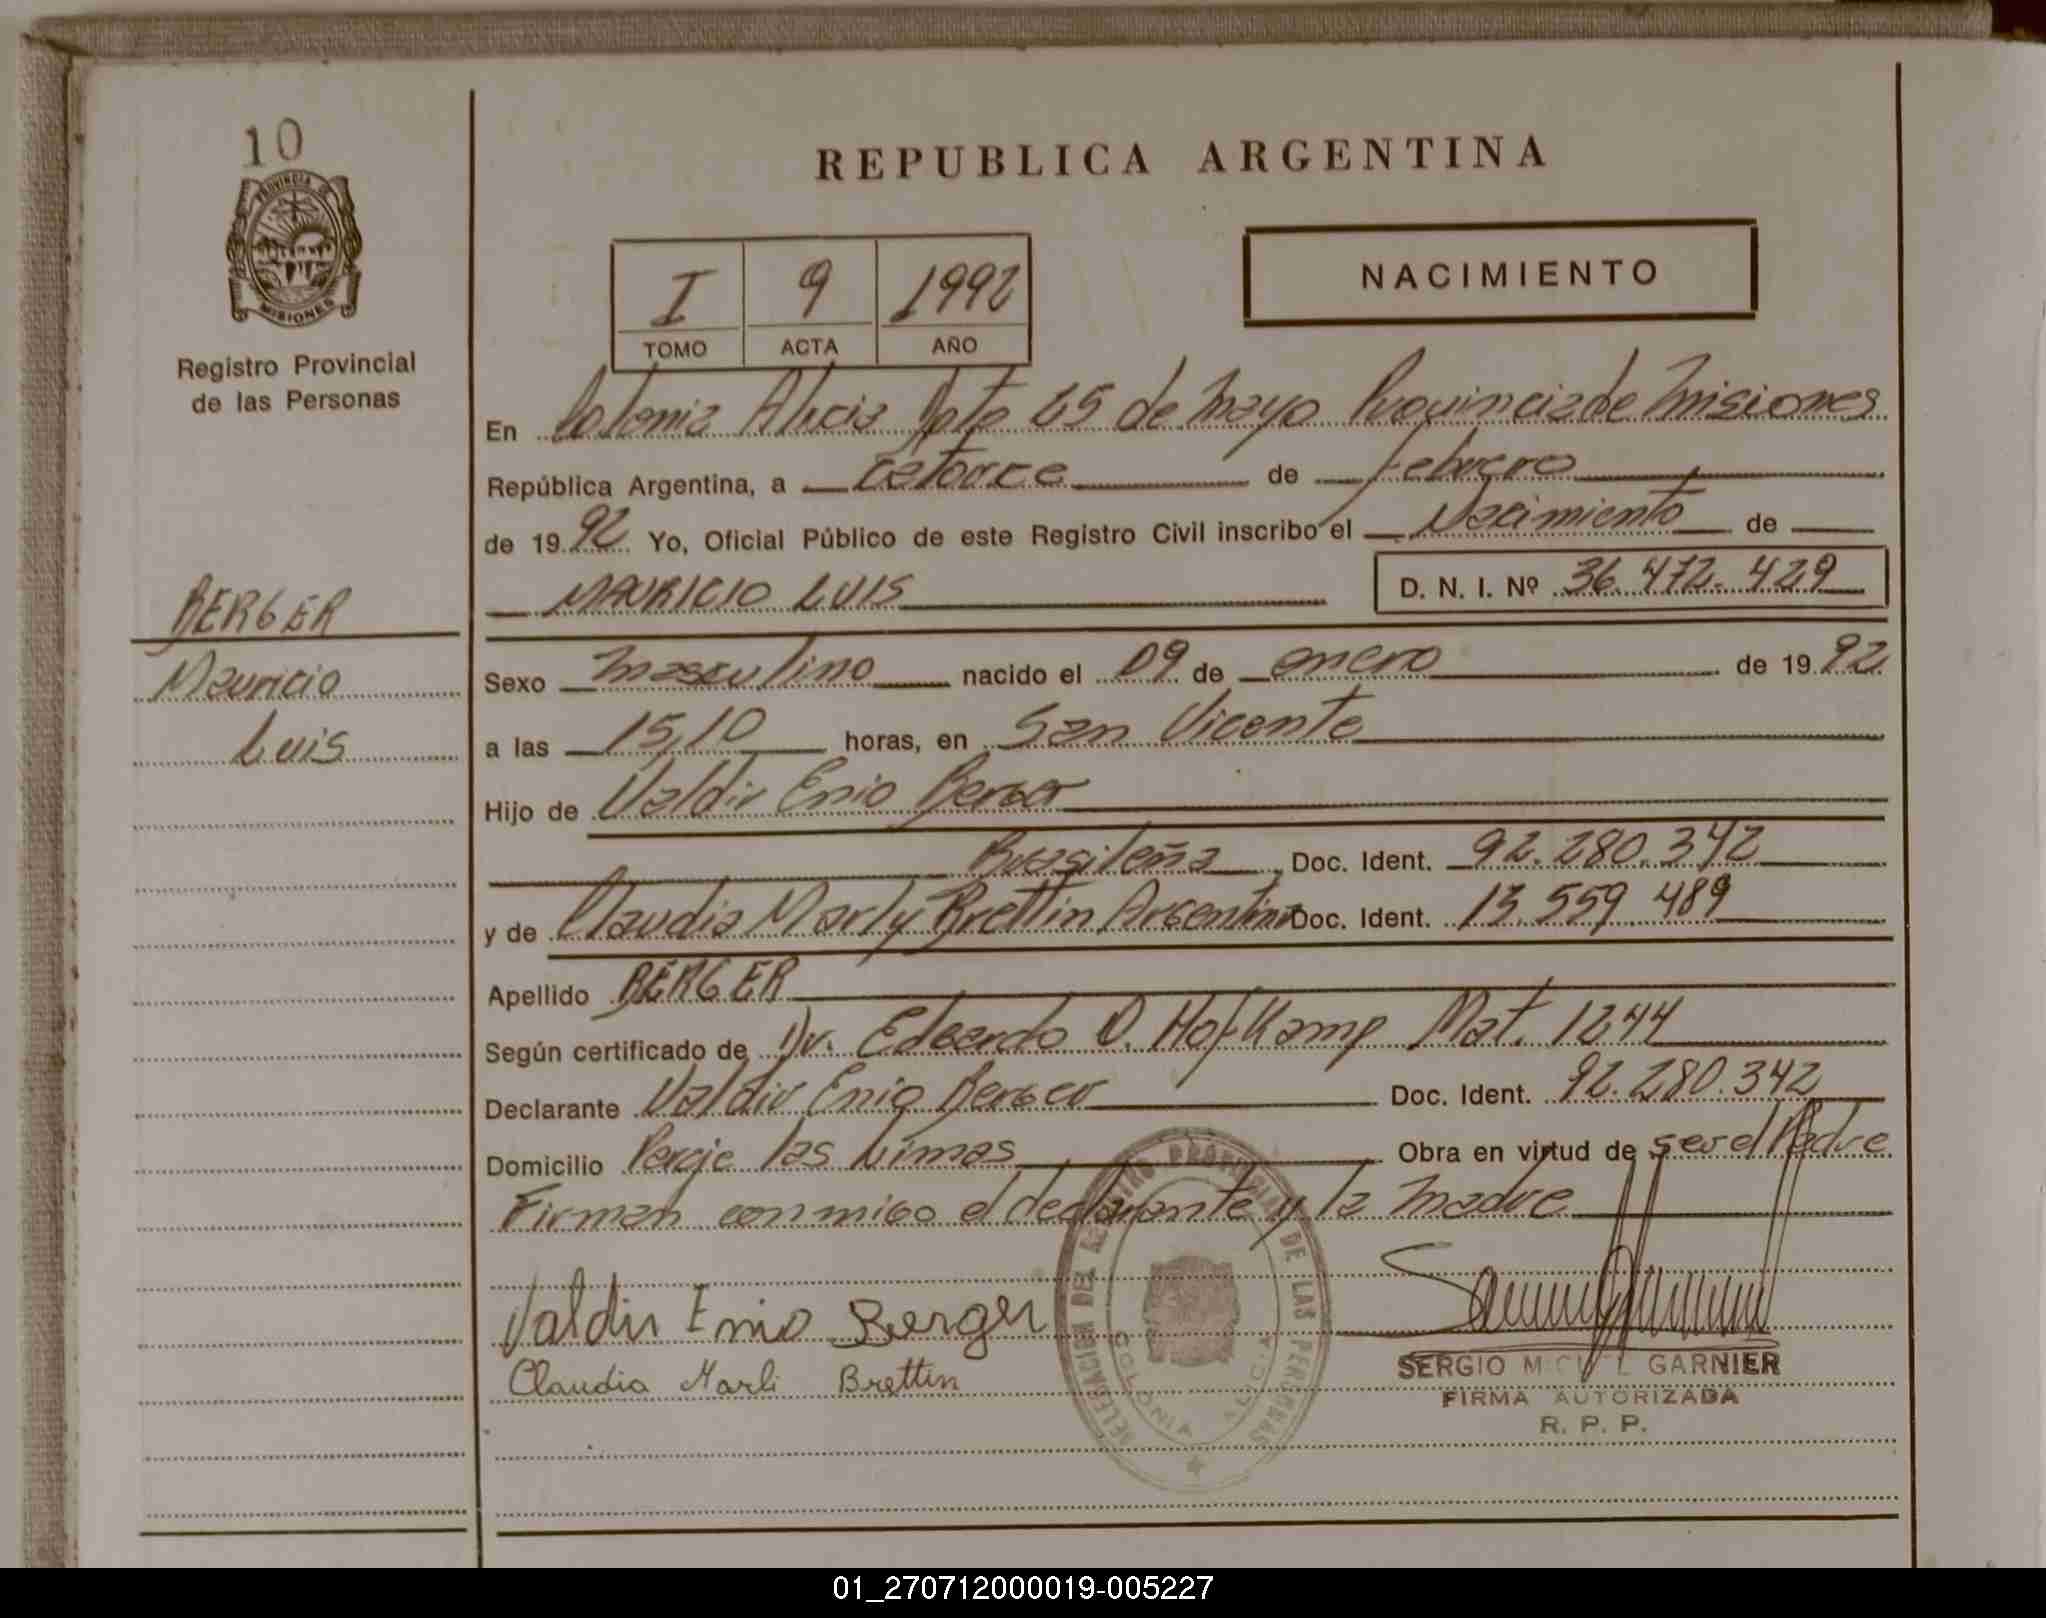 10
PROVINCIA DE
MISIONES
Registro Provincial
de las Personas
BERGER
Mauricio
Luis
REPUBLICA ARGENTINA
I 9 1992
TOMO ACTA AÑO
NACIMIENTO
En Colonia Alicia Dpto 25 de Mayo Provincia de Misiones
República Argentina, a catorce de febrero
de 1992 Yo, Oficial Público de este Registro Civil inscribo el Nacimiento de
MAURICIO LUIS D. N. I. Nº 36.472.429
Sexo masculino nacido el 09 de enero de 1992
a las 15,10 horas, en San Vicente
Hijo de Valdir Enio Berger
Brasileña Doc. Ident. 92.280.342
y de Claudia Marly Brettin Argentina Doc. Ident. 13.559.489
Apellido BERGER
Según certificado de Dr. Edgardo O. Hofkamp Mat. 1244
Declarante Valdir Enio Berger Doc. Ident. 92.280.342
Domicilio Paraje las Limas Obra en virtud de ser el Padre
Firman conmigo el declarante y la madre
Valdir Enio Berger
Claudia Marli Brettin
DELEGACION DEL REGISTRO PROVINCIAL DE LAS PERSONAS
COLONIA ALICIA
SERGIO MIGUEL GARNIER
FIRMA AUTORIZADA
R. P. P.
01_270712000019-005227